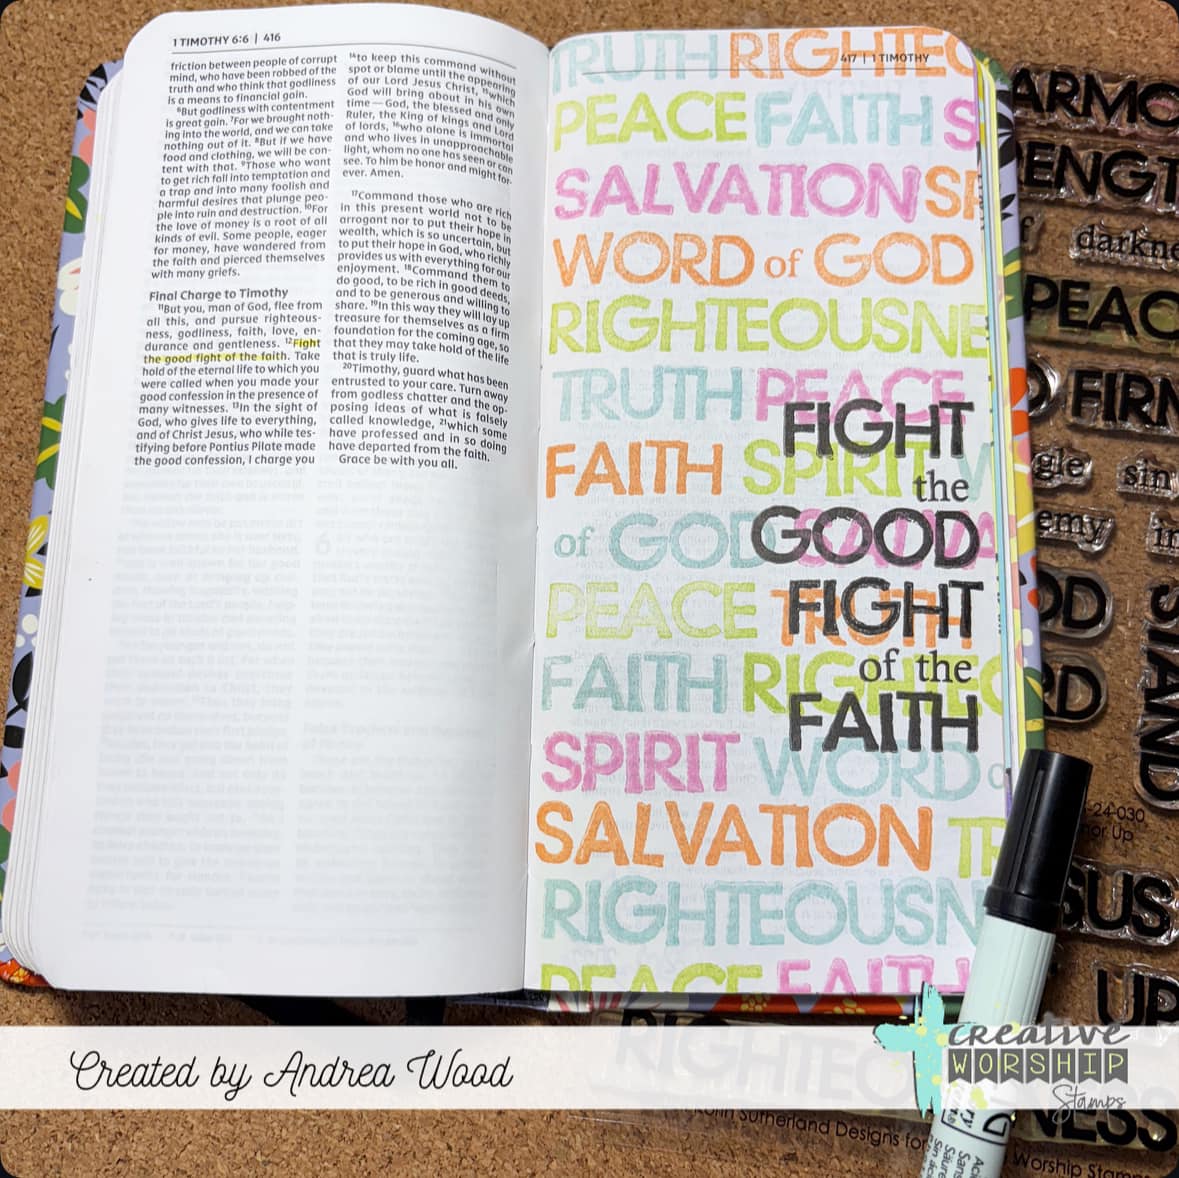 1 TIMOTHY 6:6 | 416
friction between people of corrupt
mind, who have been robbed of the
truth and who think that godliness
is a means to financial gain.
⁶But godliness with contentment
is great gain. ⁷For we brought noth-
ing into the world, and we can take
nothing out of it. ⁸But if we have
food and clothing, we will be con-
tent with that. ⁹Those who want
to get rich fall into temptation and
a trap and into many foolish and
harmful desires that plunge peo-
ple into ruin and destruction. ¹⁰For
the love of money is a root of all
kinds of evil. Some people, eager
for money, have wandered from
the faith and pierced themselves
with many griefs.
Final Charge to Timothy
¹¹But you, man of God, flee from
all this, and pursue righteous-
ness, godliness, faith, love, en-
durance and gentleness. ¹²Fight
the good fight of the faith. Take
hold of the eternal life to which you
were called when you made your
good confession in the presence of
many witnesses. ¹³In the sight of
God, who gives life to everything,
and of Christ Jesus, who while tes-
tifying before Pontius Pilate made
the good confession, I charge you
¹⁴to keep this command without
spot or blame until the appearing
of our Lord Jesus Christ, ¹⁵which
God will bring about in his own
time — God, the blessed and only
Ruler, the King of kings and Lord
of lords, ¹⁶who alone is immortal
and who lives in unapproachable
light, whom no one has seen or can
see. To him be honor and might for-
ever. Amen.
¹⁷Command those who are rich
in this present world not to be
arrogant nor to put their hope in
wealth, which is so uncertain, but
to put their hope in God, who richly
provides us with everything for our
enjoyment. ¹⁸Command them to
do good, to be rich in good deeds,
and to be generous and willing to
share. ¹⁹In this way they will lay up
treasure for themselves as a firm
foundation for the coming age, so
that they may take hold of the life
that is truly life.
²⁰Timothy, guard what has been
entrusted to your care. Turn away
from godless chatter and the op-
posing ideas of what is falsely
called knowledge, ²¹which some
have professed and in so doing
have departed from the faith.
Grace be with you all.
417 | 1 TIMOTHY
TRUTH RIGHTEO
PEACE FAITH S
SALVATION SP
WORD of GOD
RIGHTEOUSNE
TRUTH PEACE
FAITH SPIRIT W
of GOD
PEACE TRUTH
FAITH RIGHTEO
SPIRIT WORD o
SALVATION TR
RIGHTEOUSN
PEACE FAITH
FIGHT
the
GOOD
FIGHT
of the
FAITH
ARMO
ENGT
darkne
PEAC
FIRN
gle
sin
emy
in
OD
RD
STAND
-24-030
or Up
SUS
UP
RIGHTEO
NESS
Sutherland Designs for
Worship Stam
Created by Andrea Wood
creative
WORSHIP
Stamps